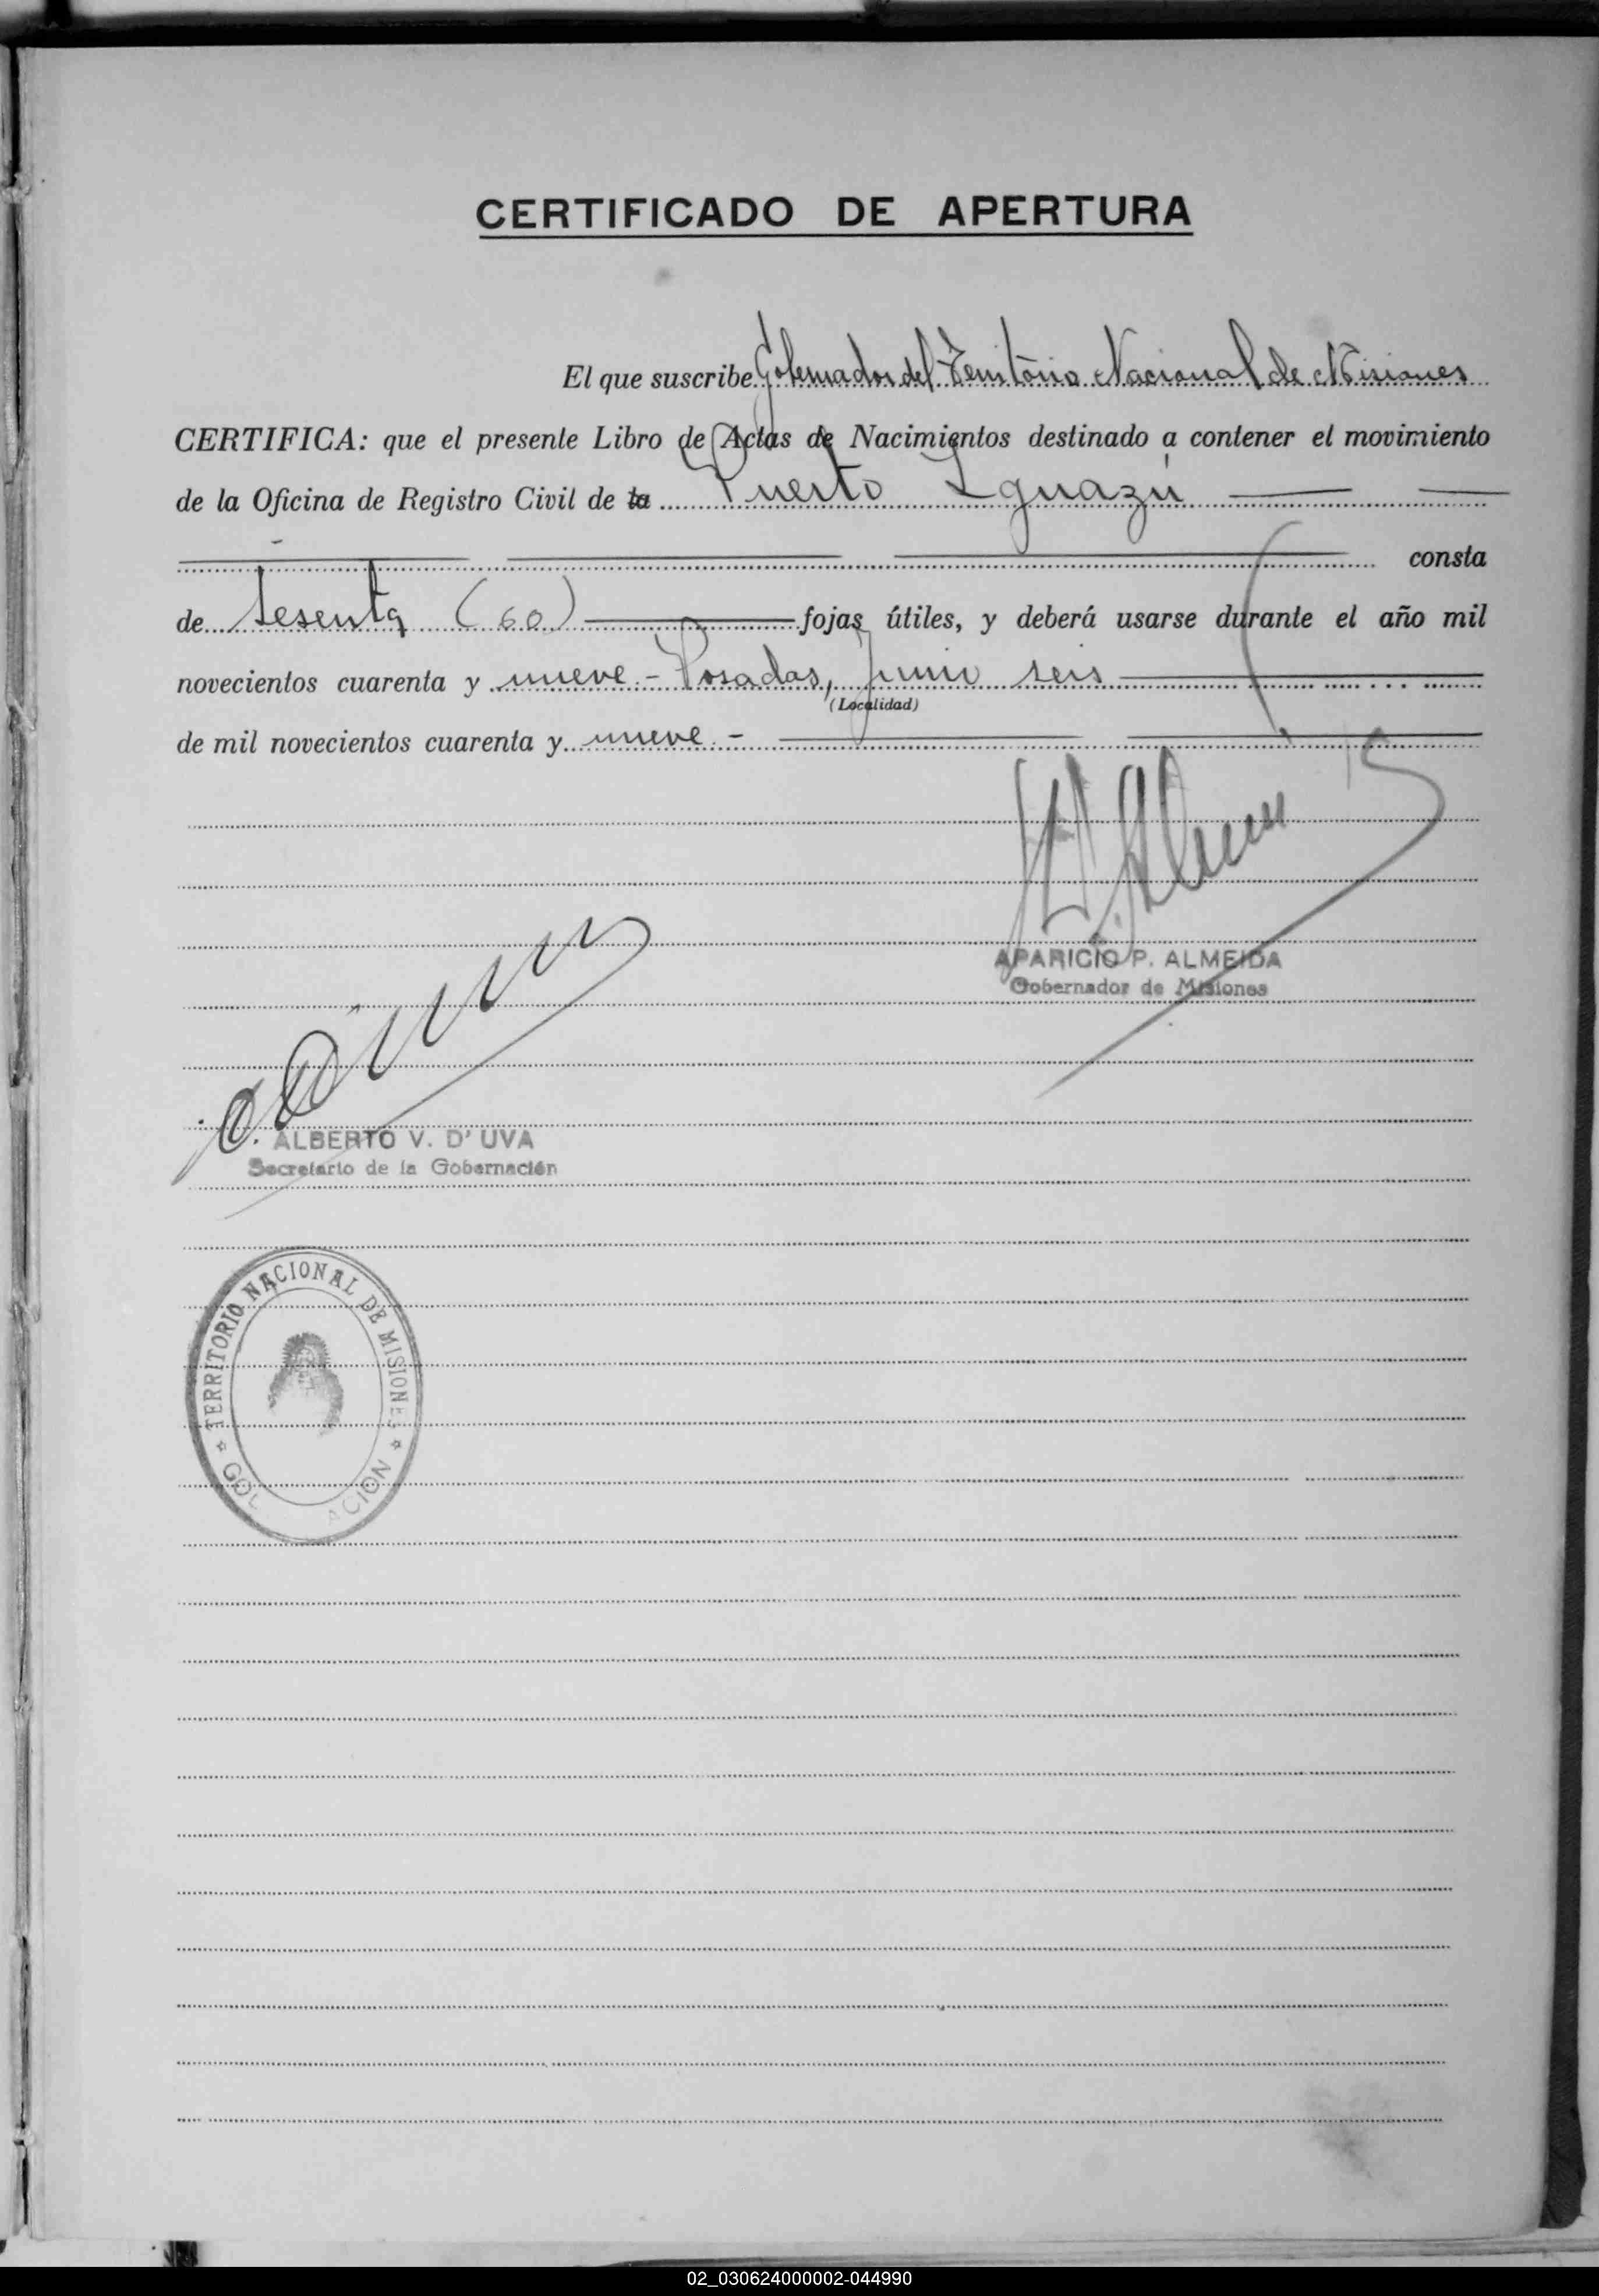 CERTIFICADO DE APERTURA
El que suscribe Gobernador del Territorio Nacional de Misiones
CERTIFICA: que el presente Libro de Actas de Nacimientos destinado a contener el movimiento
de la Oficina de Registro Civil de la Puerto Iguazú
consta
de sesenta (60) fojas útiles, y deberá usarse durante el año mil
novecientos cuarenta y nueve - Posadas, junio seis
(Localidad)
de mil novecientos cuarenta y nueve -
APARICIO P. ALMEIDA
Gobernador de Misiones
ALBERTO V. D' UVA
Secretario de la Gobernación
TERRITORIO NACIONAL DE MISIONES
02_030624000002-044990